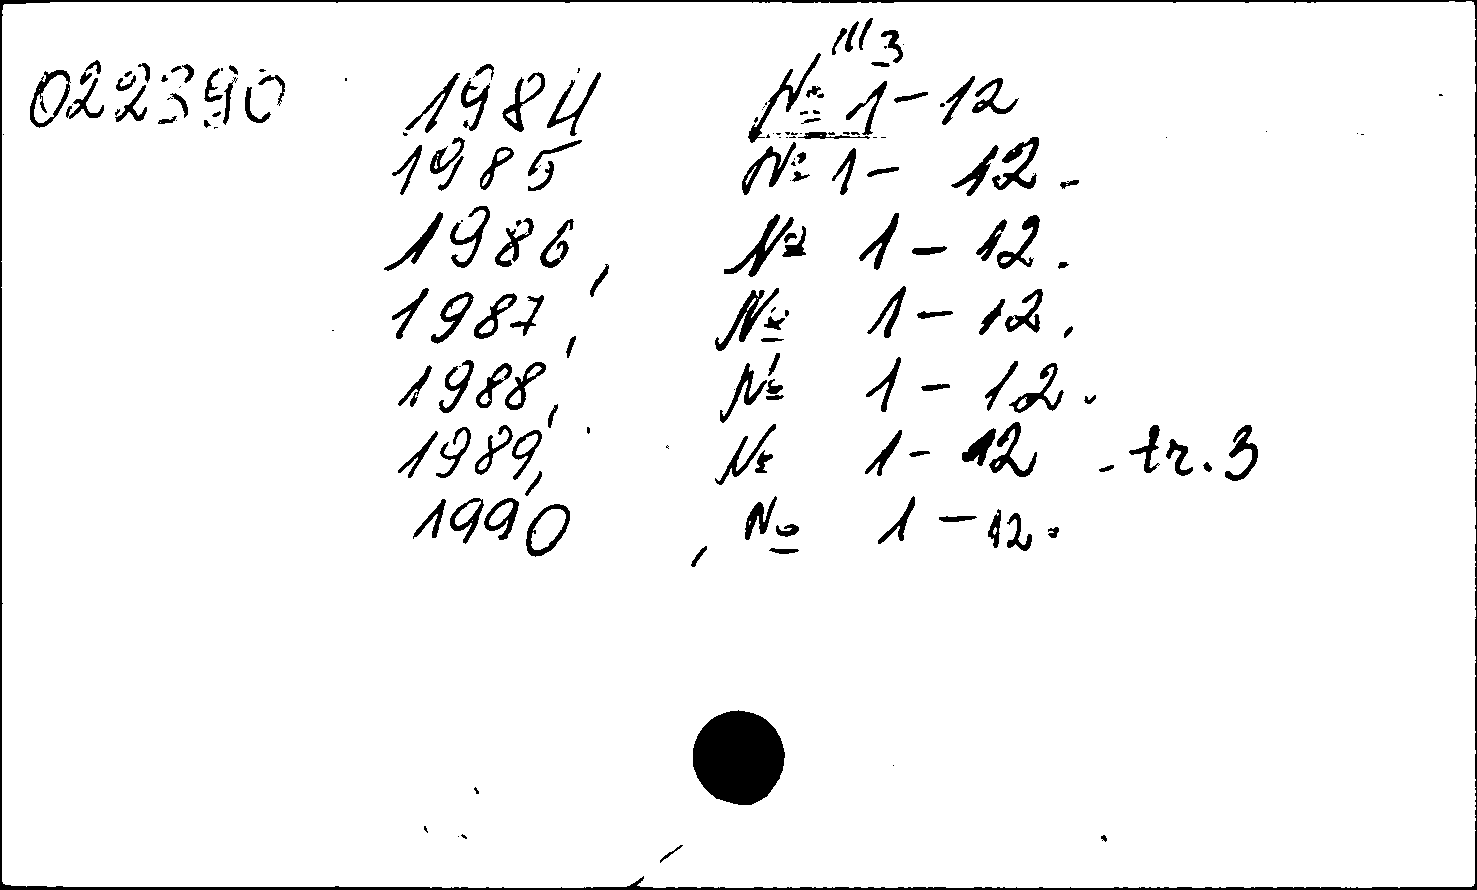 III 3
022390 1984 № 1-12
1985 № 1- 12.
1986, № 1-12.
1987, № 1-12.
1988, № 1-12.
1989, № 1-12 - tr. 3
1990, № 1-12.